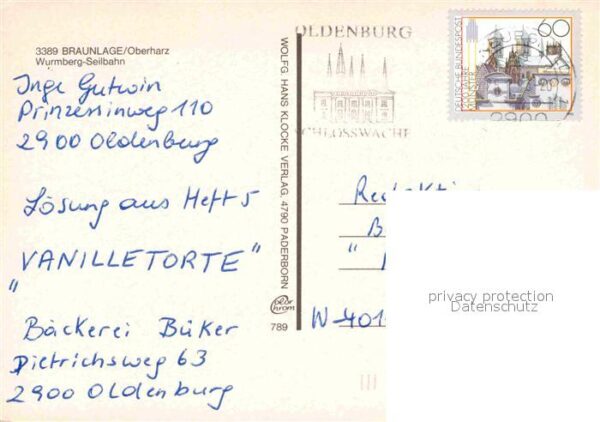 3389 BRAUNLAGE/Oberharz
Wurmberg-Seilbahn
Inge Gutwin
Prinzessinweg 110
2900 Oldenburg
Lösung aus Heft 5
"VANILLETORTE"
Bäckerei Büker
Dietrichsweg 63
2900 Oldenburg
WOLFG. HANS KLOCKE VERLAG, 4790 PADERBORN
789
OLDENBURG
SCHLOSSWACHE
DEUTSCHE BUNDESPOST
60
2900
Redakti
B
"
W-401
privacy protection
Datenschutz